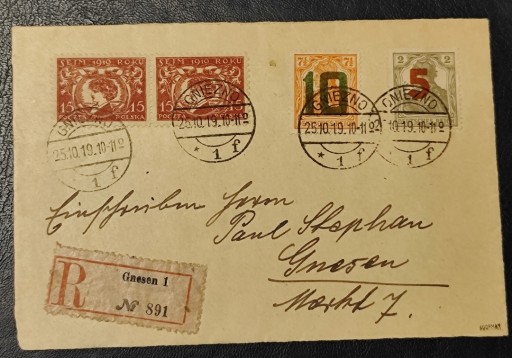 SEJM 1919 ROKU
15 15
POCZTA POLSKA
SEJM 1919 ROKU
15 15
POCZTA POLSKA
7½ 7½
10
2 2
5
GNIEZNO
25.10.19.10-11V
* 1 f
GNIEZNO
25.10.19.10-11V
* 1 f
GNIEZNO
25.10.19.10-11V
* 1 f
GNIEZNO
.10.19.10-11V
* 1 f
Einschreiben Herrn
Paul Stephan
Gnesen
Markt 7.
R
Gnesen 1
№ 891